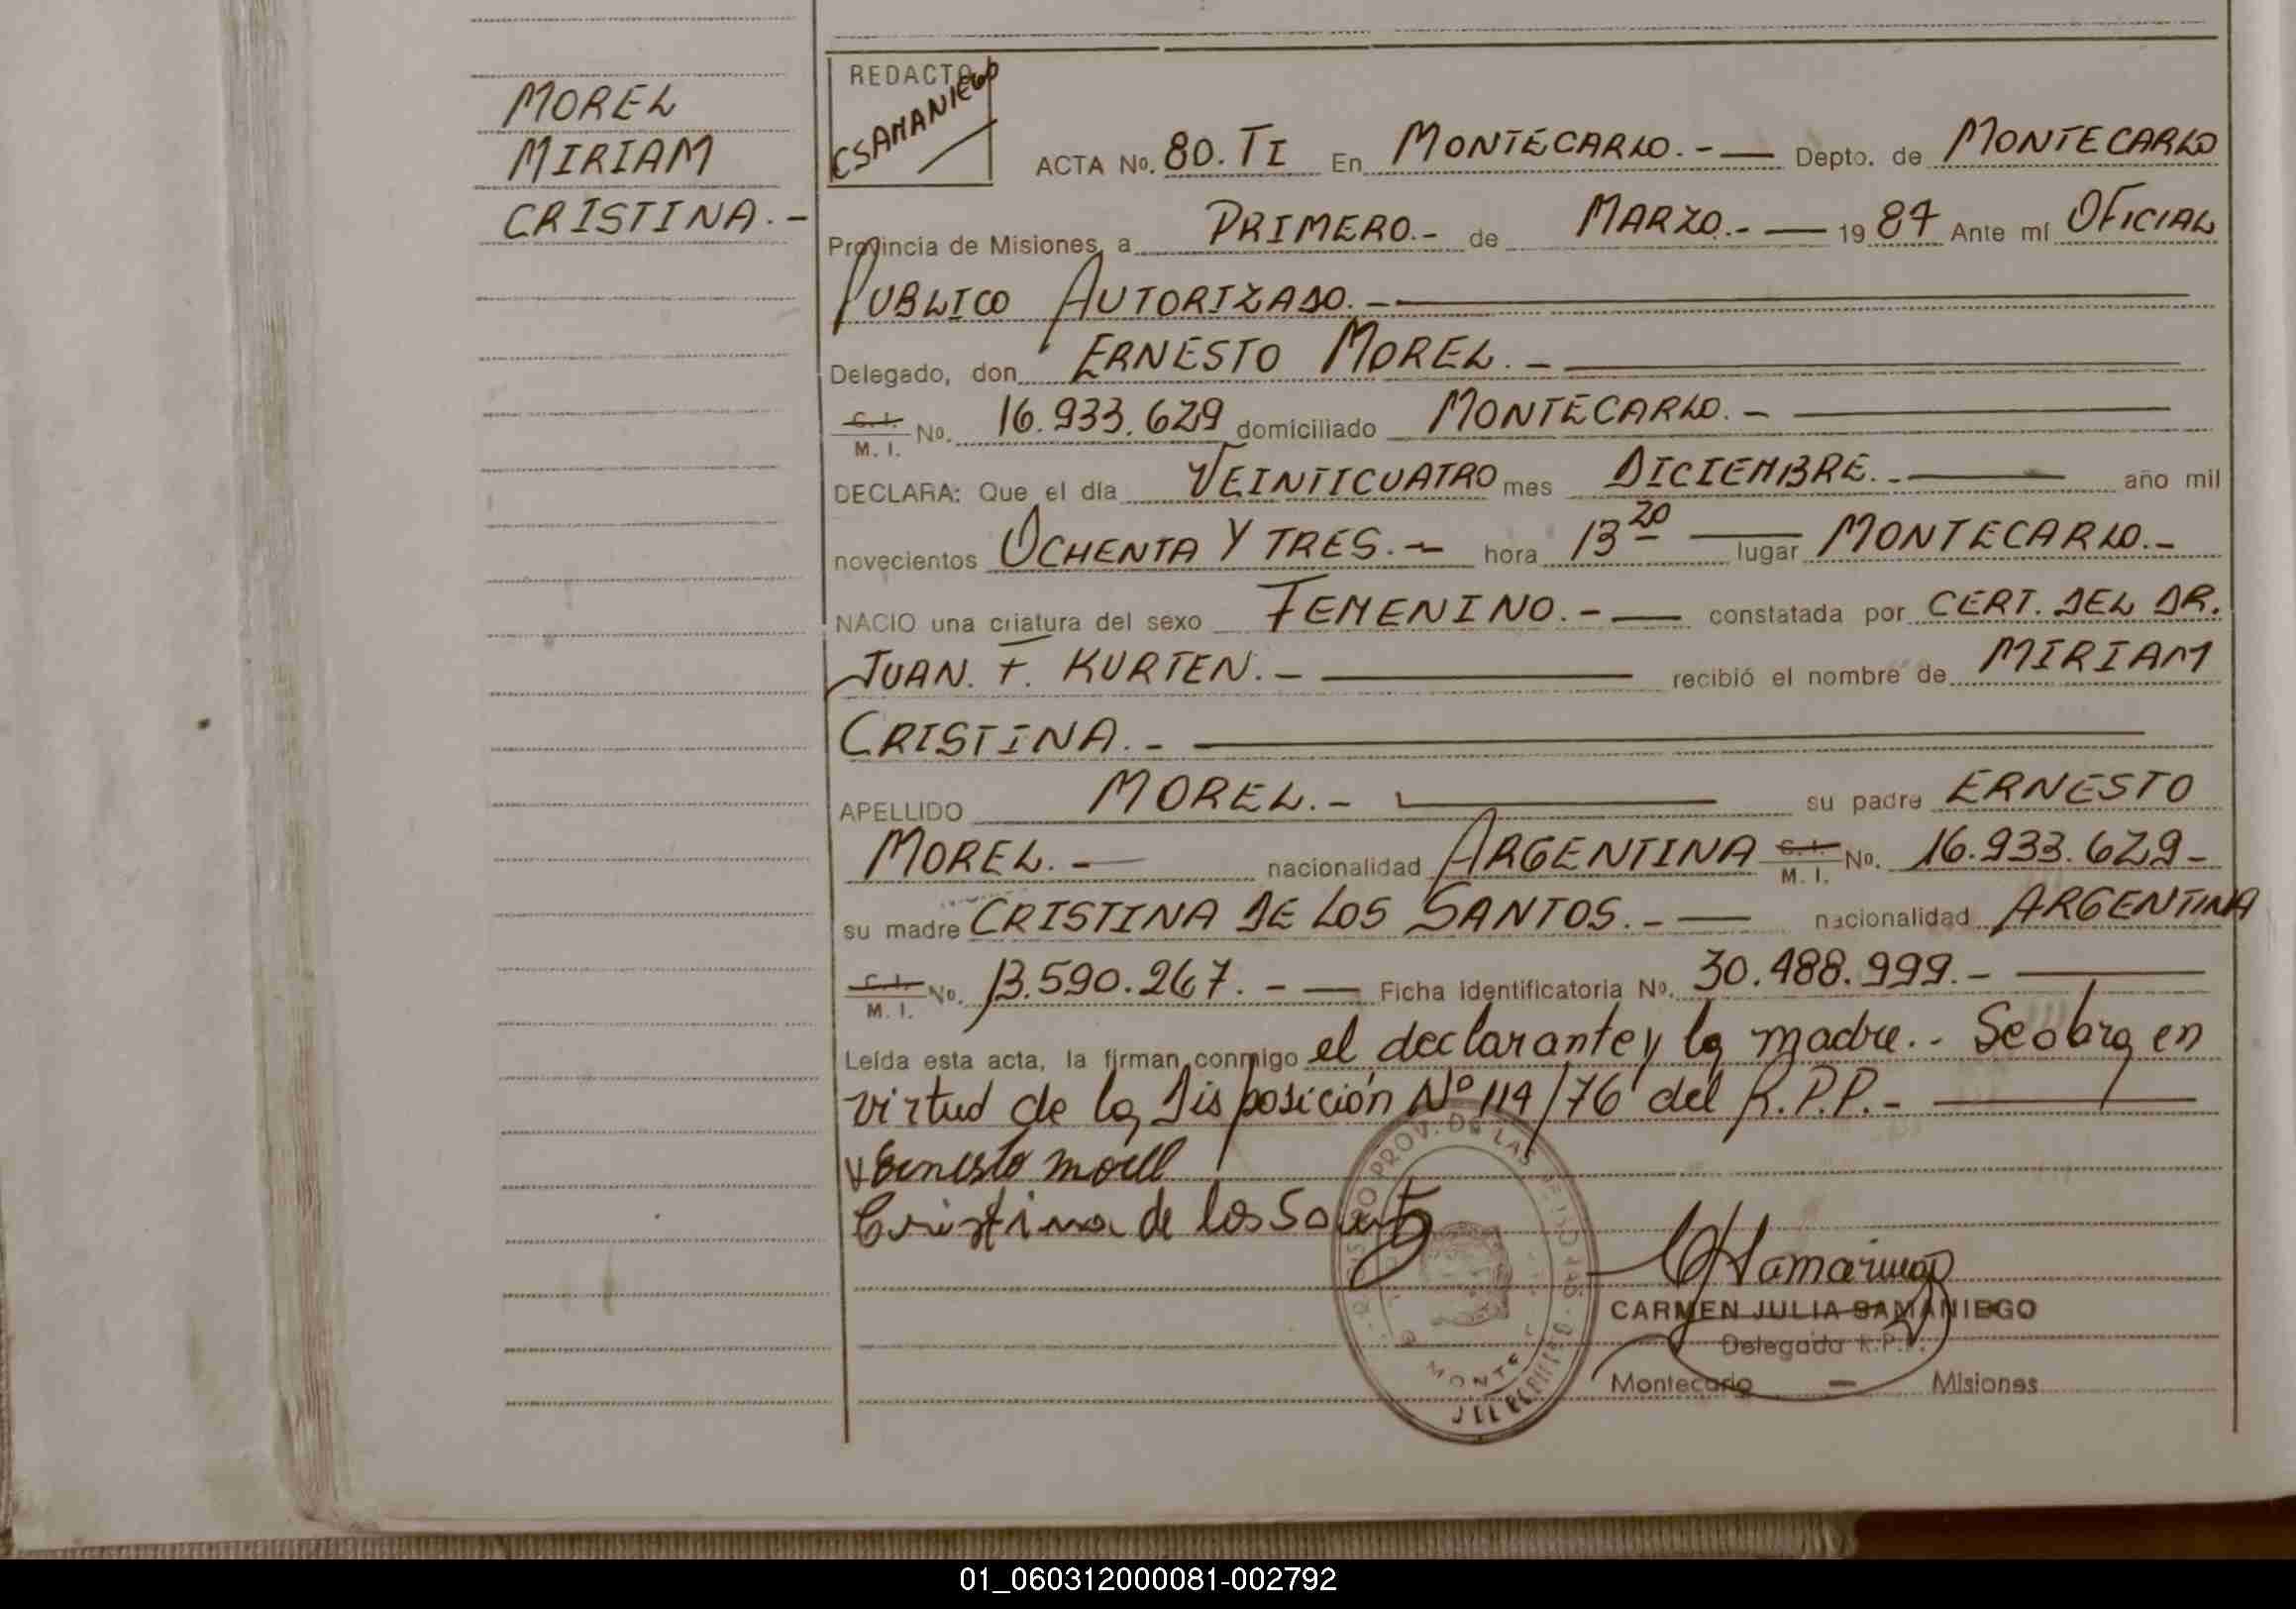 MOREL
MIRIAM
CRISTINA.-
REDACTO
CSAMANIEGO
ACTA No. 80. TI En MONTECARLO.- Depto. de MONTECARLO
Provincia de Misiones, a PRIMERO.- de MARZO.- 1984 Ante mí OFICIAL
PUBLICO AUTORIZADO.-
Delegado, don ERNESTO MOREL.-
C. I. M. I. No. 16.933.629 domiciliado MONTECARLO.-
DECLARA: Que el día VEINTICUATRO mes DICIEMBRE.- año mil
novecientos OCHENTA Y TRES.- hora 13 20 lugar MONTECARLO.-
NACIO una criatura del sexo FEMENINO.- constatada por CERT. DEL DR.
JUAN. F. KURTEN.- recibió el nombre de MIRIAM
CRISTINA.-
APELLIDO MOREL.- su padre ERNESTO
MOREL.- nacionalidad ARGENTINA C. I. M. I. No. 16.933.629-
su madre CRISTINA DE LOS SANTOS.- nacionalidad ARGENTINA
C. I. M. I. No. 13.590.267.- Ficha Identificatoria No. 30.488.999.-
Leída esta acta, la firman conmigo el declarante y la madre.- Se obra en
virtud de la Disposición Nº 114/76 del R.P.P.-
Ernesto morel
Cristina de los Santos
PROV. DE LAS
MONTE
CSamaniego
CARMEN JULIA SAMANIEGO
Delegada R.P.P.
Montecarlo - Misiones
01_060312000081-002792